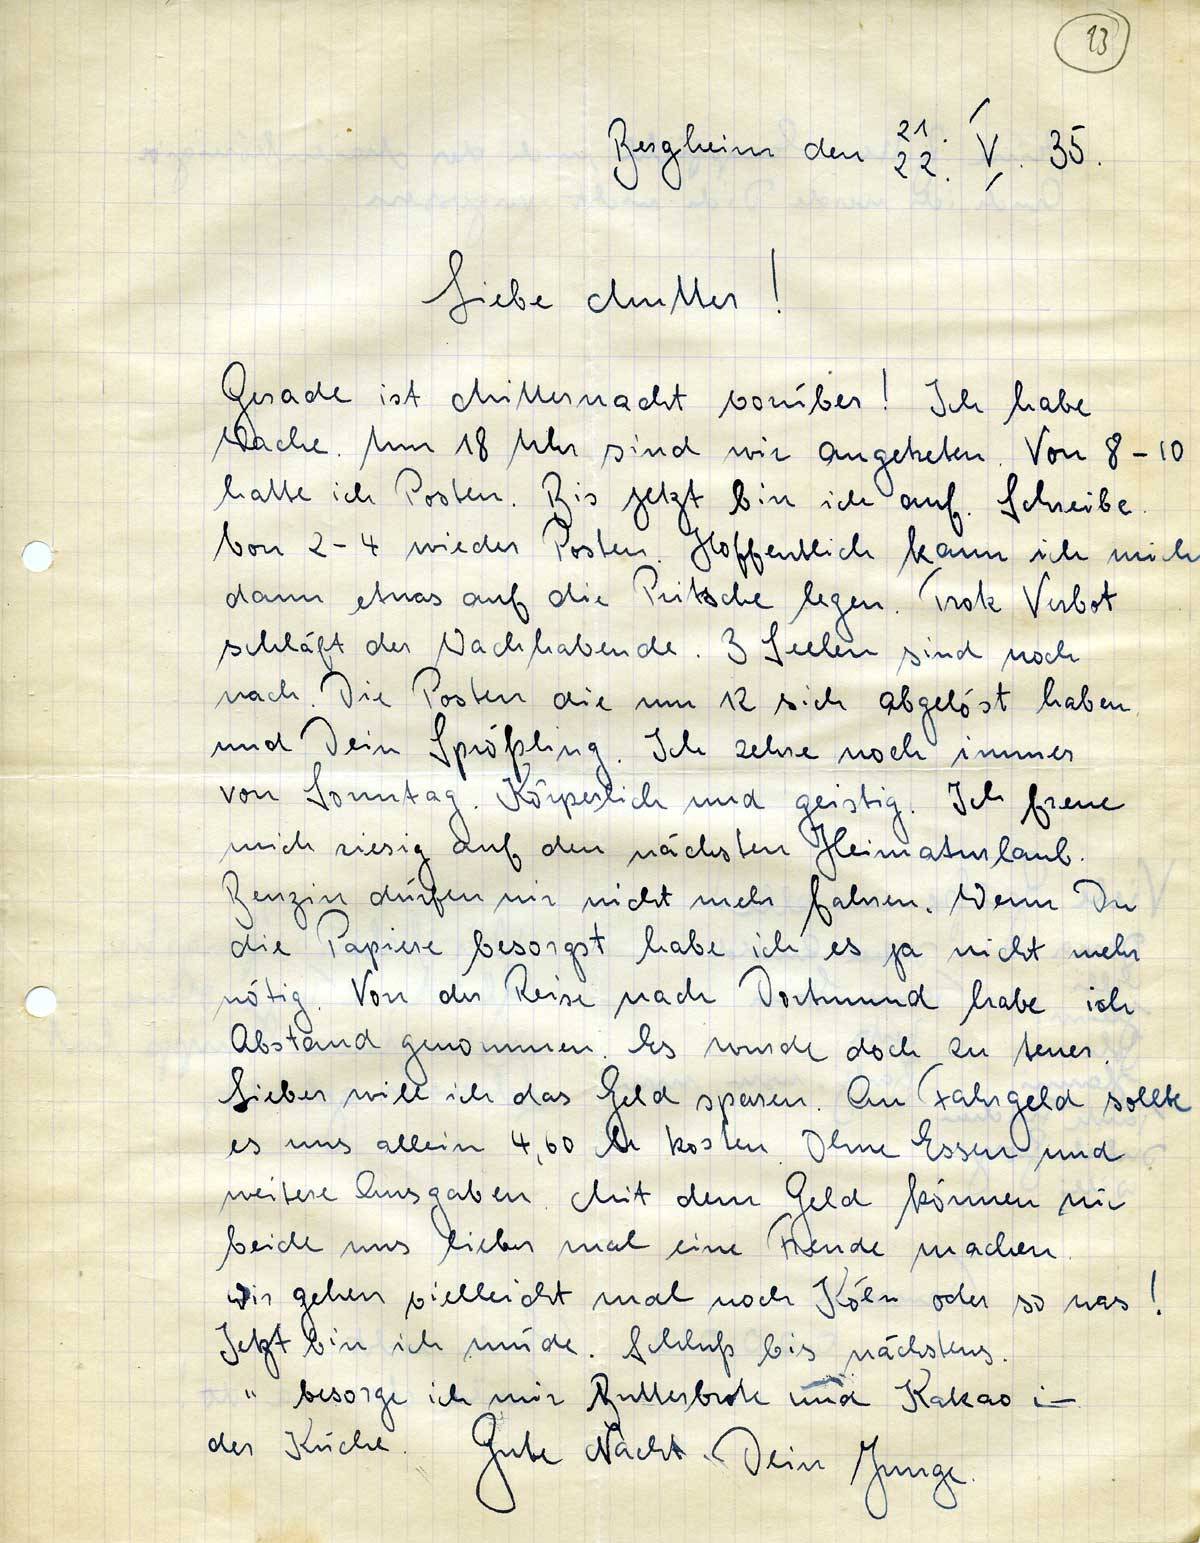 13
Bergheim den 21./22. V. 35.
Liebe Mutter!
Gerade ist Mitternacht vorüber! Ich habe
Wache. Um 18 Uhr sind wir angetreten. Von 8-10
hatte ich Posten. Bis jetzt bin ich auf. Schreibe.
Von 2-4 wieder Posten. Hoffentlich kann ich mich
dann etwas auf die Pritsche legen. Trotz Verbot
schläft der Wachhabende. 3 Seelen sind noch
wach. Die Posten die um 12 sich abgelöst haben
und Dein Sprößling. Ich zehre noch immer
von Sonntag. Körperlich und geistig. Ich freue
mich riesig auf den nächsten Heimaturlaub.
Benzin dürfen wir nicht mehr fahren. Wenn Du
die Papiere besorgst habe ich es ja nicht mehr
nötig. Von der Reise nach Dortmund habe ich
Abstand genommen. Es wurde doch zu teuer.
Lieber will ich das Geld sparen. An Fahrgeld sollte
es uns allein 4,60 M kosten. Ohne Essen und
weitere Ausgaben. Mit dem Geld können wir
beide uns lieber mal eine Freude machen.
Wir gehen vielleicht mal nach Köln oder so was!
Jetzt bin ich müde. Schluß bis nächstens.
" besorge ich mir Butterbrote und Kakao in
der Küche. Gute Nacht. Dein Junge.